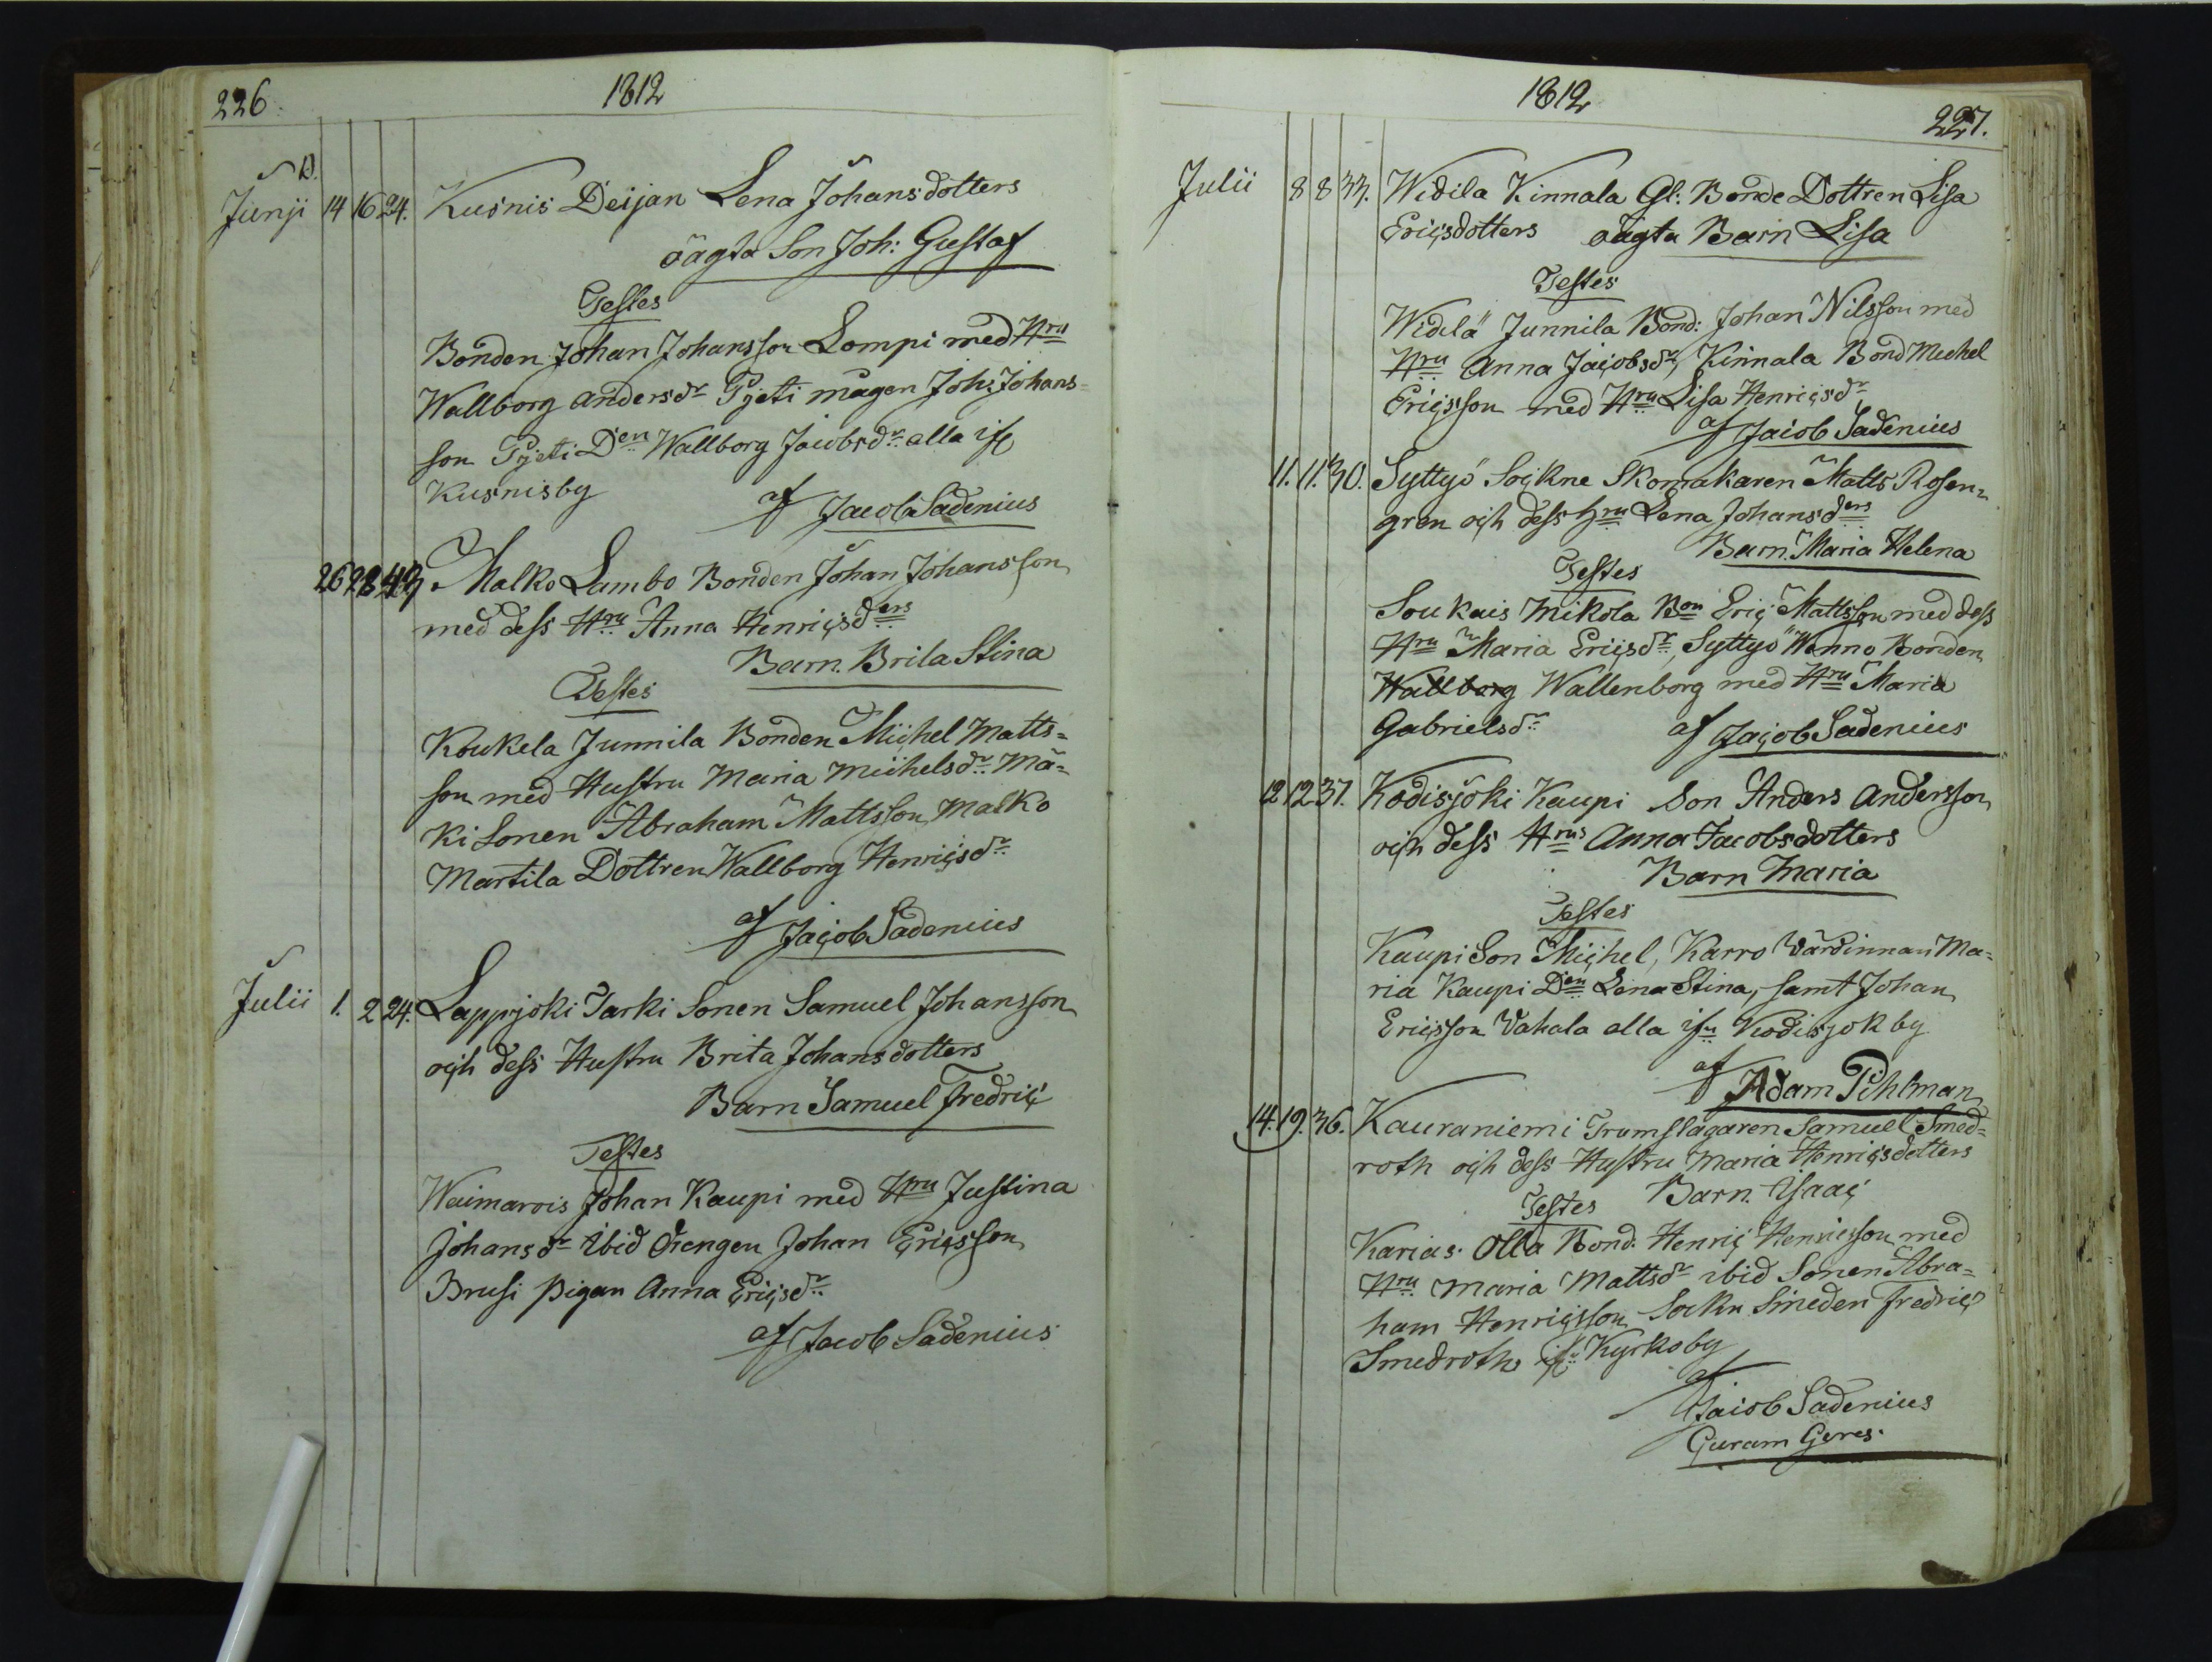 226. 1812
D.
Junji 14 16 24. Kusnis Deijan Lena Johansdotters
oägta Son Joh: Gustaf
Testes
Bonden Johan Johansson Lompi med Hru
Wallborg andersdr Pyeti mågen Joh: Johans=
son Pyeti Den Wallborg Jacobsdr alla ifr
Kusnisby af Jacob Sadenius
26 28 43 Malko Lambo Bonden Johan Johansson
med dess Hru Anna Henricsders
Barn. Brita Stina
Testes
Koukela Junnila Bonden Michel Matts=
son med Hustru Maria Michelsdr. Mä=
ki Sonen Abraham Mattsson, Malko
Martila Dottren Wallborg Henricsdr
af Jacob Sadenius
Julii 1. 2 24. Lappijoki Tarki Sonen Samuel Johansson
och dess Hustru Brita Johansdotters
Barn Samuel Fredric
Testes
Weimarois Johan Kaupi med Hru Justina
Johansdr ibid drengen Johan Ericsson
Brusi pigan Anna Ericsdr
af Jacob Sadenius
1812 227.
Julii 8 8 33. Widila Kinnala Gl: Bonde Dottren Lisa
Ericsdotters oägta Barn Lisa
Testes
Widilä Junnila Bond: Johan Nilsson med
Hru Anna Jacobsdr, Kinnala Bond Mechel
Ericsson med Hru Lisa Henricsdr
af Jacob Sadenius
11. 11. 30. Syttyö Sockne Skomakaren Matts Rosen=
gren och dess Hru Lena Johansders
Barn. Maria Helena
Testes
Soukais Mikola Bon Eric Mattsson med dess
Hru Maria Ericsdr, Syttyö Wenno Bonden
Wallborg Wallenborg med Hru Maria
Gabrielsdr af Jacob Sadenius
12 12 37. Kodisjoki Kaupi Son Anders Andersson
och dess Hrus Anna Jacobsdotters
Barn Maria
Testes
Kaupi Son Michel, Karro Värdinnan Ma=
ria Kaupi Den Lena Stina, samt Johan
Ericsson Vahala alla ifrn Kodisjok by
af Adam Pihlman
14. 19. 36. Kauraniemi Trumslagaren Samuel Smed=
roth och dess Hustru Maria Henricsdotters
Testes Barn. Isaac
Karias. Olla Bond. Henric Henricsson med
Hru Maria Mattsdr ibid Sonen Abra=
ham Henricsson, Sockn Smeden Fredric
Smedroth ifr Kyrkoby
af
Jacob Sadenius
Curam Geres.